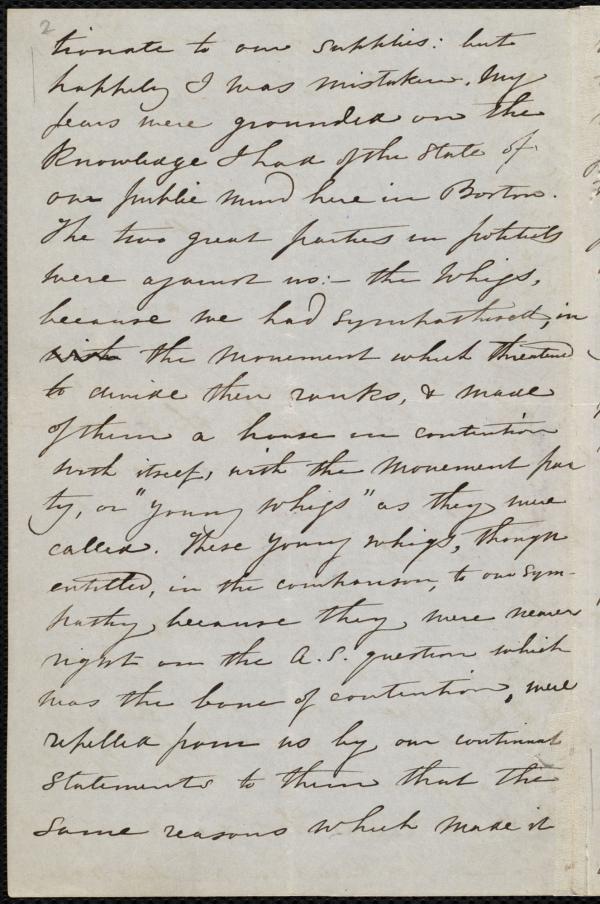 2
tionate to our supplies: but
happily I was mistaken. My
fears were grounded on the
Knowledge I had of the State of
our public mind here in Boston.
The two great parties in politics
were against us:- the Whigs,
because we had sympathised, in
with the movement which threatened
to divide their ranks, & made
of them a house in contention
with itself, with the movement par
ty, or "young Whigs" as they were
called. These young whigs, though
entitled, in the comparison, to our sym-
pathy, because they were nearer
right on the A.S. question which
was the bone of contention, were
repelled from us by our continual
Statements to them that the
same reasons which made it